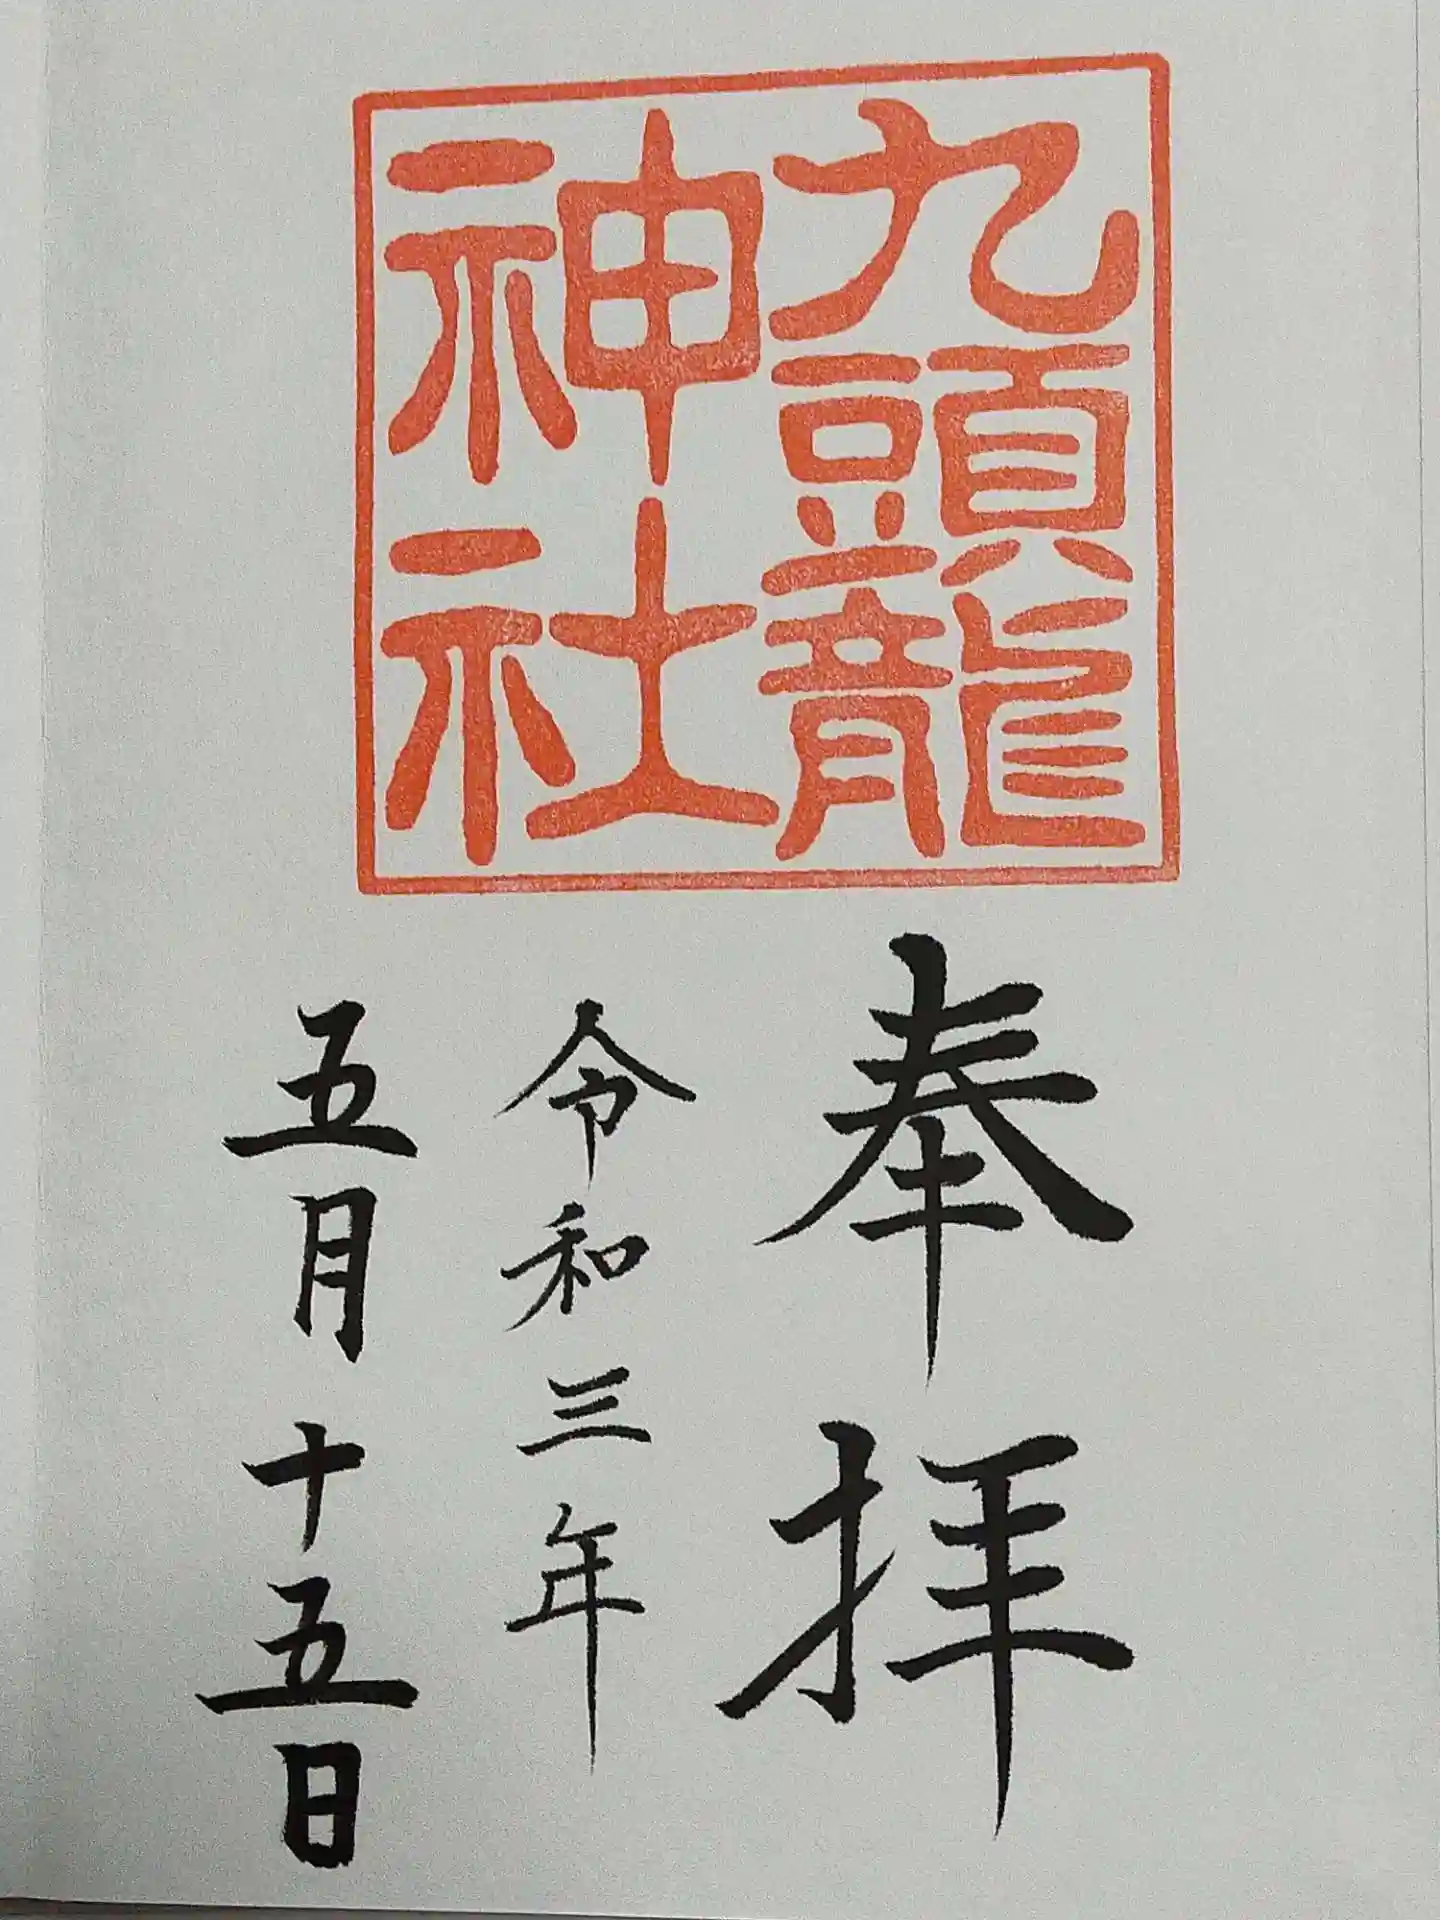 九頭龍
神社
奉拝
令和三年
五月十五日